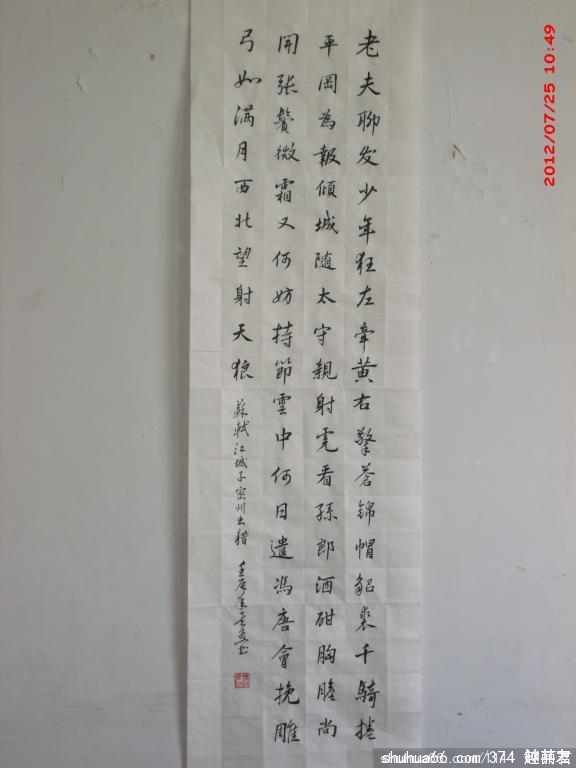 老夫聊发少年狂左牽黄右擎蒼錦帽貂裘千騎捲
平岡為報傾城随太守親射虎看孫郎酒酣胸膽尚
開張鬢微霜又何妨持節雲中何日遣馮唐會挽雕
弓如满月西北望射天狼
蘇軾江城子密州出猎
壬辰年
2012/07/25 10:49